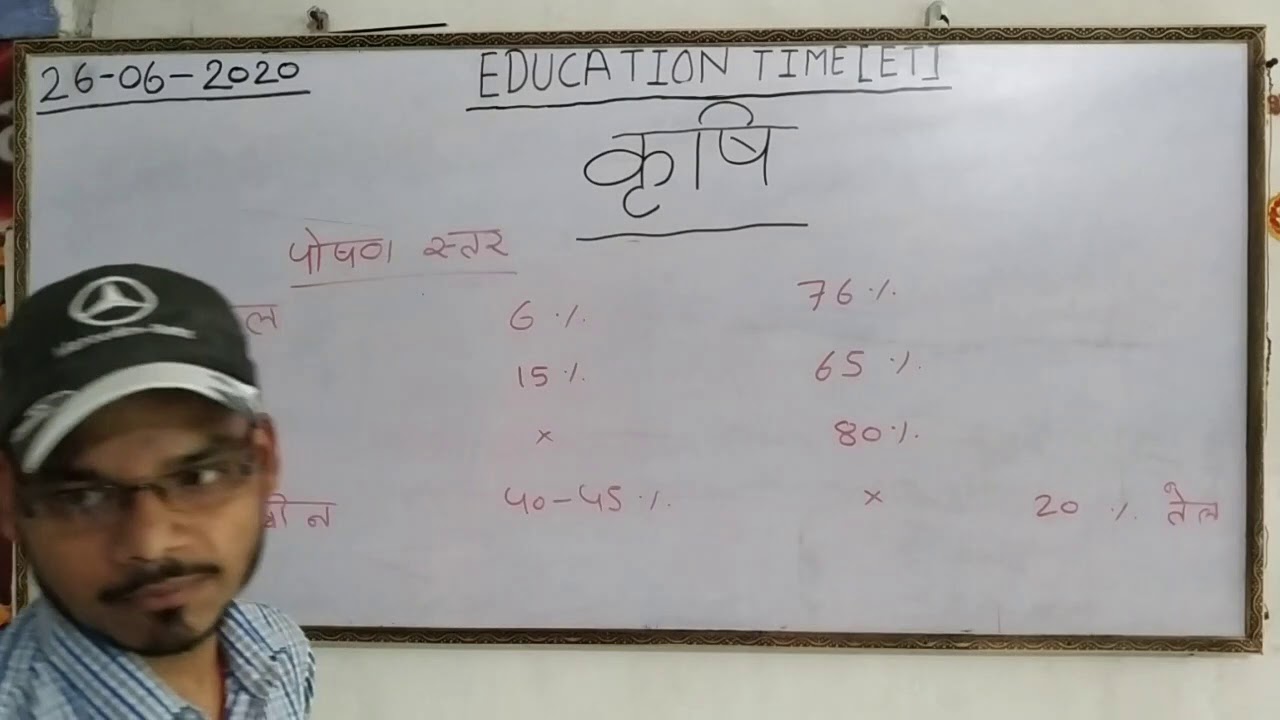 26-06-2020 EDUCATION TIME [ET]
कृषि
पोषण स्तर
6 % 76 %
15 % 65 %
× 80 %
40-45 % × 20 % तेल